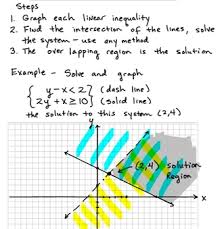 Steps
1. Graph each linear inequality
2. Find the intersection of the lines, solve
the system - use any method
3. The over lapping region is the solution
Example - Solve and graph
{ y-x<2} (dash line)
{ 2y+x≥10} (solid line)
the solution to this system (2,4)
y
(2,4) solution
Region
x